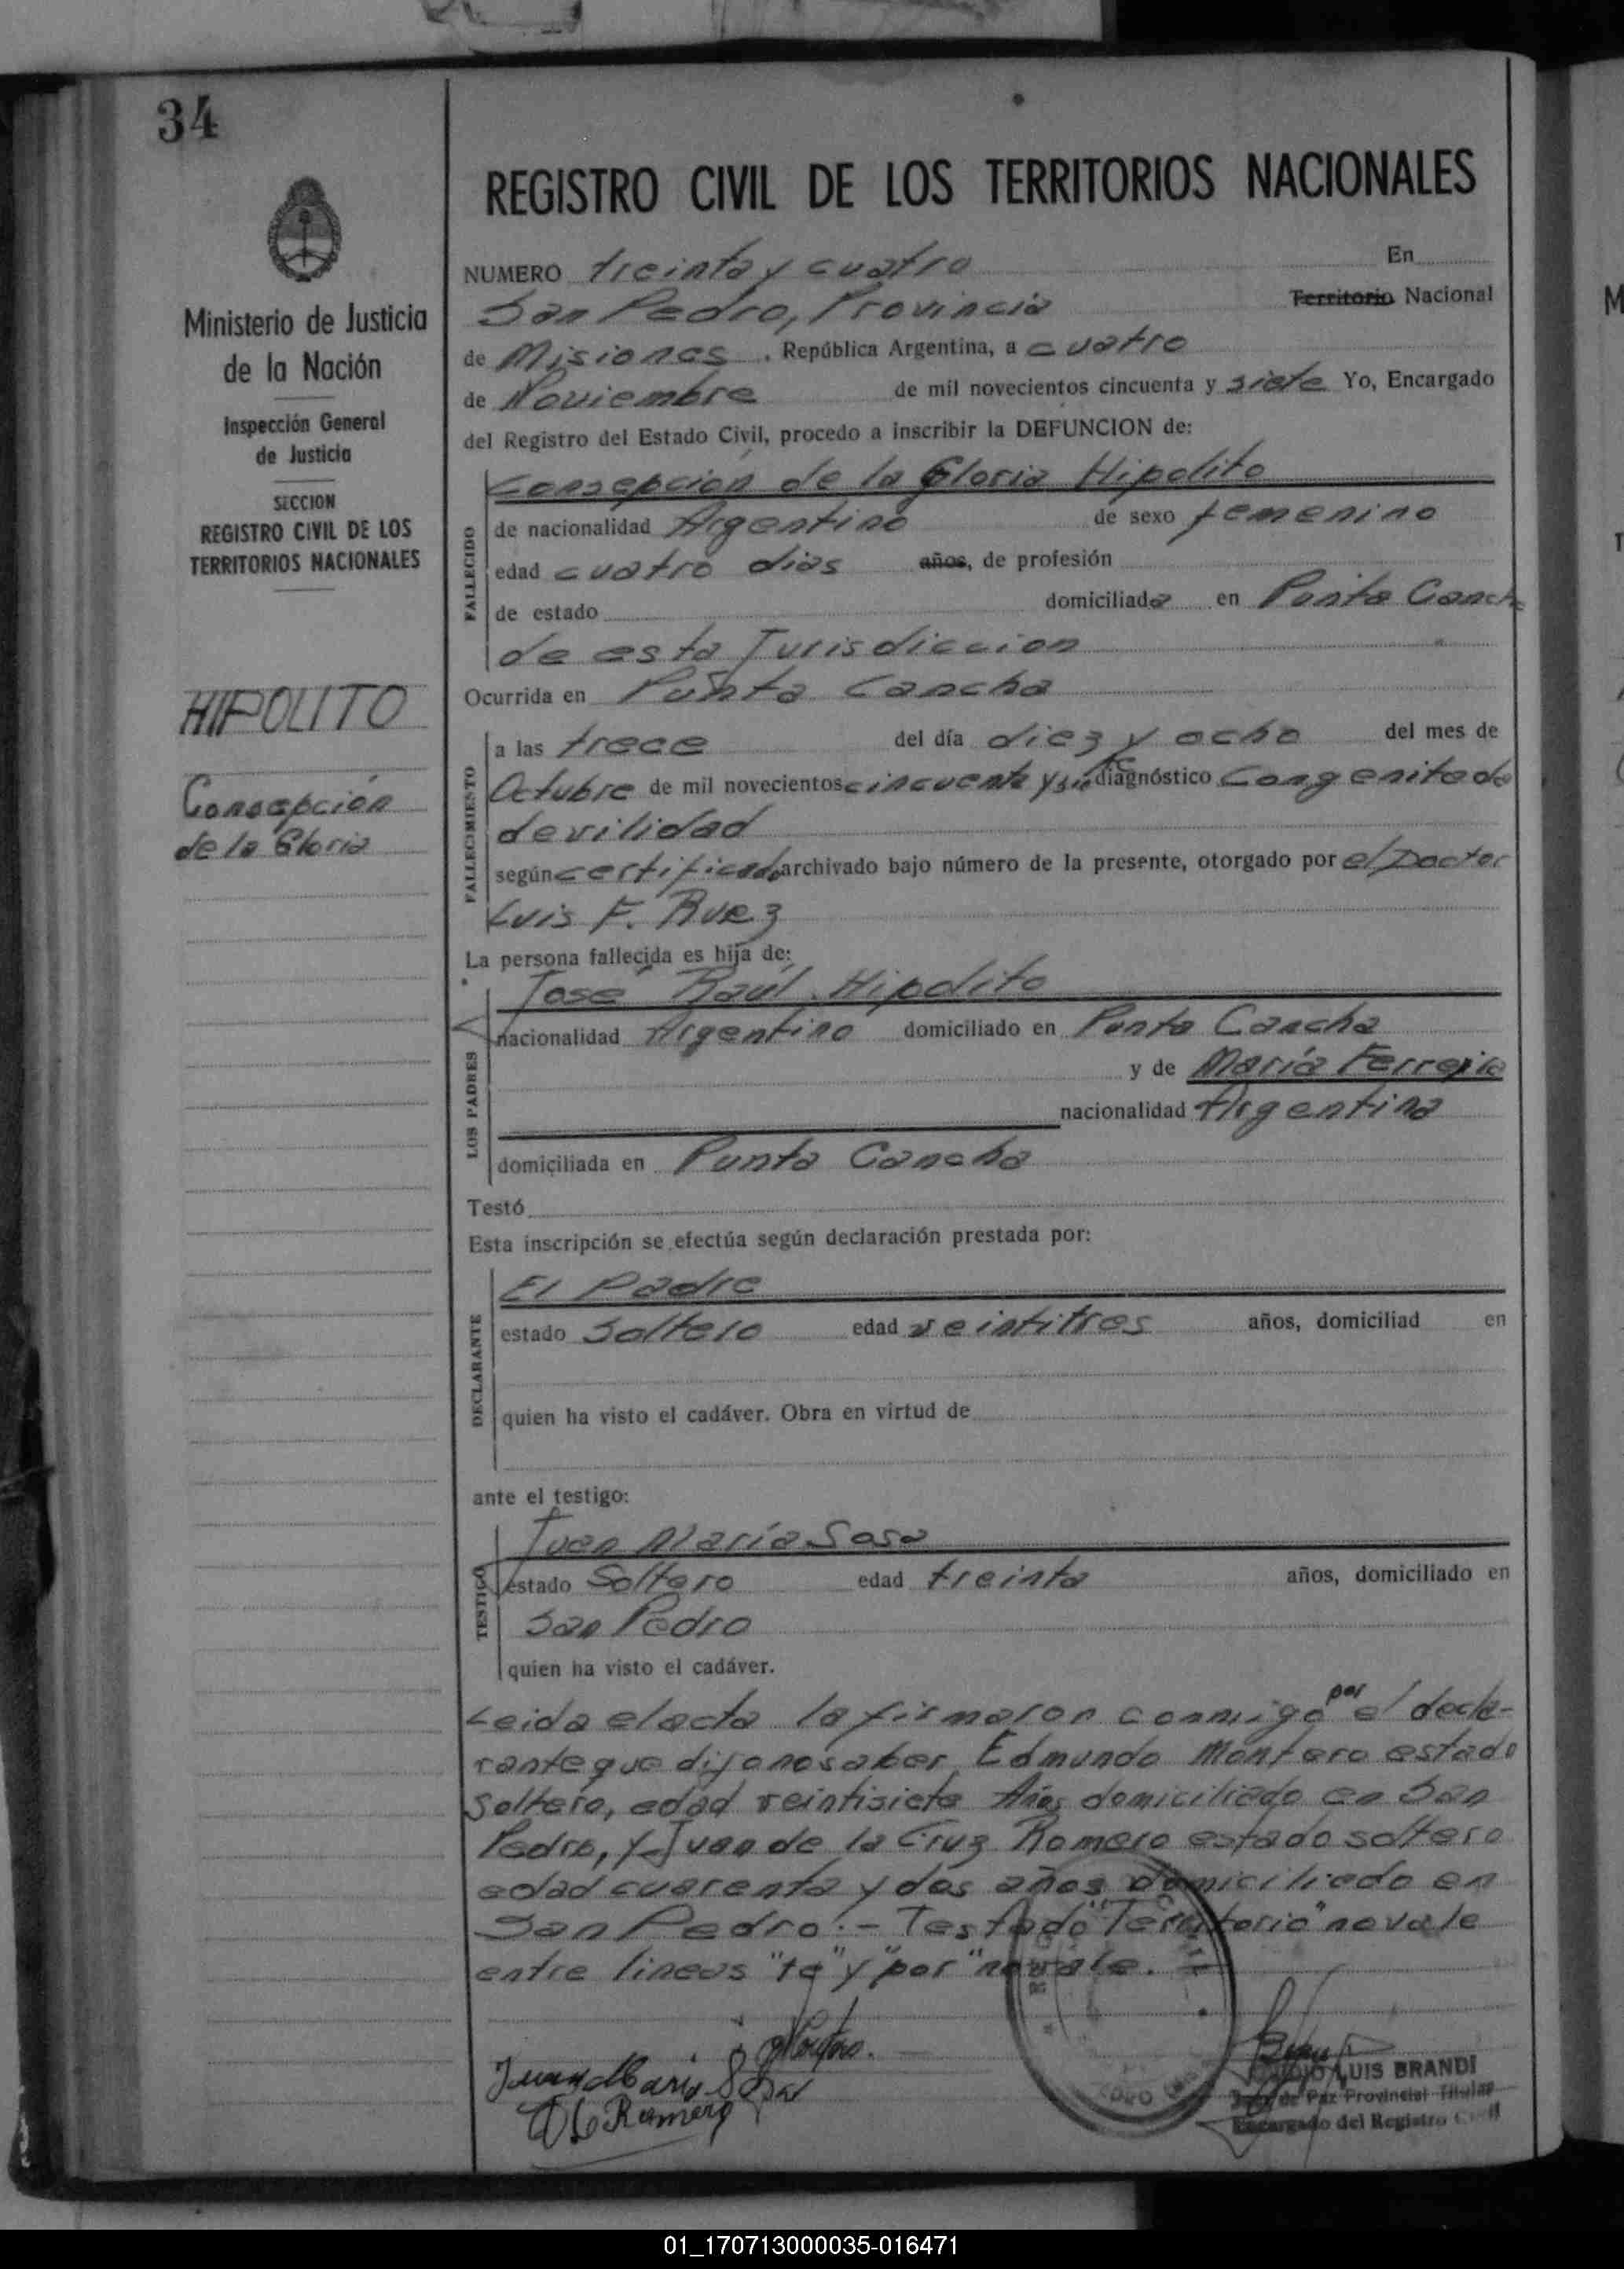 34
Ministerio de Justicia
de la Nación
Inspección General
de Justicia
SECCION
REGISTRO CIVIL DE LOS
TERRITORIOS NACIONALES
HIPOLITO
Consepción
de la Gloria
REGISTRO CIVIL DE LOS TERRITORIOS NACIONALES
NUMERO treinta y cuatro En
San Pedro, Provincia Territorio Nacional
de Misiones, República Argentina, a cuatro
de Noviembre de mil novecientos cincuenta y siete Yo, Encargado
del Registro del Estado Civil, procedo a inscribir la DEFUNCION de:
Consepción de la Gloria Hipolito
FALLECIDO
de nacionalidad Argentino de sexo femenino
edad cuatro dias años, de profesión
de estado domiciliada en Punta Canch
de esta Jurisdiccion
Ocurrida en Punta Cancha
FALLECIMIENTO
a las trece del día diez y ocho del mes de
Octubre de mil novecientos cincuenta y sie te diagnóstico Congenita de
devilidad
según certificado archivado bajo número de la presente, otorgado por el Doctor
Luis F. Ruez
La persona fallecida es hija de:
LOS PADRES
José Raúl Hipolito
nacionalidad Argentino domiciliado en Punta Cancha
y de María Ferreira
nacionalidad Argentina
domiciliada en Punta Cancha
Testó
Esta inscripción se efectúa según declaración prestada por:
DECLARANTE
El Padre
estado Soltero edad veintitres años, domiciliad en
quien ha visto el cadáver. Obra en virtud de
ante el testigo:
TESTIGO
Juan María Sosa
estado Soltero edad treinta años, domiciliado en
San Pedro
quien ha visto el cadáver.
Leida el acta la firmaron conmigo por el decla-
rante que dijo no saber Edmundo Montero estado
Soltero, edad veintisiete Años domiciliado en San
Pedro, y Juan de la Cruz Romero estado soltero
edad cuarenta y dos años domiciliado en
San Pedro.- Testado "Territorio" no vale
entre lineas "te" y "por" vale.
Juan Maria Sosa
Romero
LUIS BRANDI
Juez de Paz Provincial Titular
Encargado del Registro Civil
01_170713000035-016471